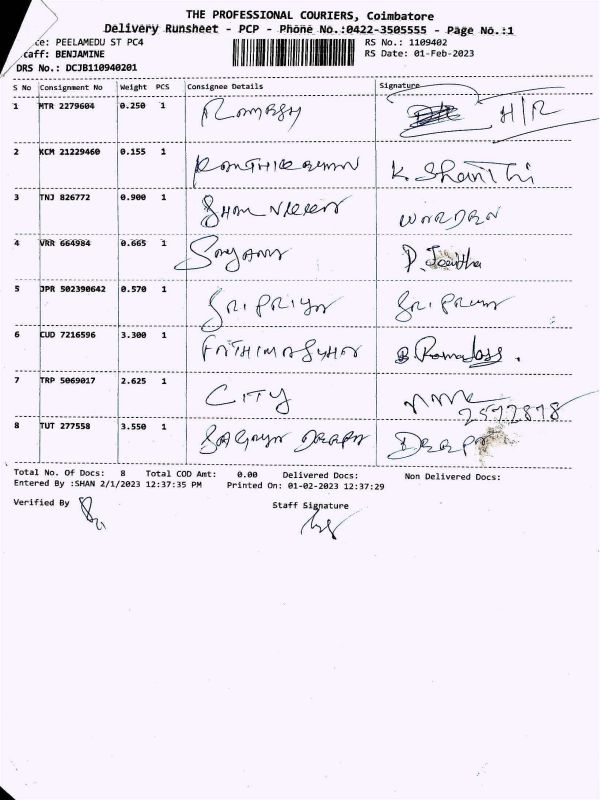 THE PROFESSIONAL COURIERS, Coimbatore
Delivery Runsheet - PCP - Phone No.:0422-3505555 - Page No.:1
te: PEELAMEDU ST PC4 RS No.: 1109402
taff: BENJAMINE RS Date: 01-Feb-2023
DRS No.: DCJB110940201
S No Consignment No Weight PCS Consignee Details Signature
1 MTR 2279604 0.250 1 Ramesh H/R
2 KCM 21229460 0.155 1 K. Shanthi
3 TNJ 826772 0.900 1 WARDEN
4 VRR 664984 0.665 1
5 JPR 502390642 0.570 1 SRI PRIYA SRI PRIYA
6 CUD 7216596 3.300 1 B. Ramadoss.
7 TRP 5069017 2.625 1 CITY
2572878
8 TUT 277558 3.550 1 DEEPA
Total No. Of Docs: 8 Total COD Amt: 0.00 Delivered Docs: Non Delivered Docs:
Entered By :SHAN 2/1/2023 12:37:35 PM Printed On: 01-02-2023 12:37:29
Verified By Staff Signature